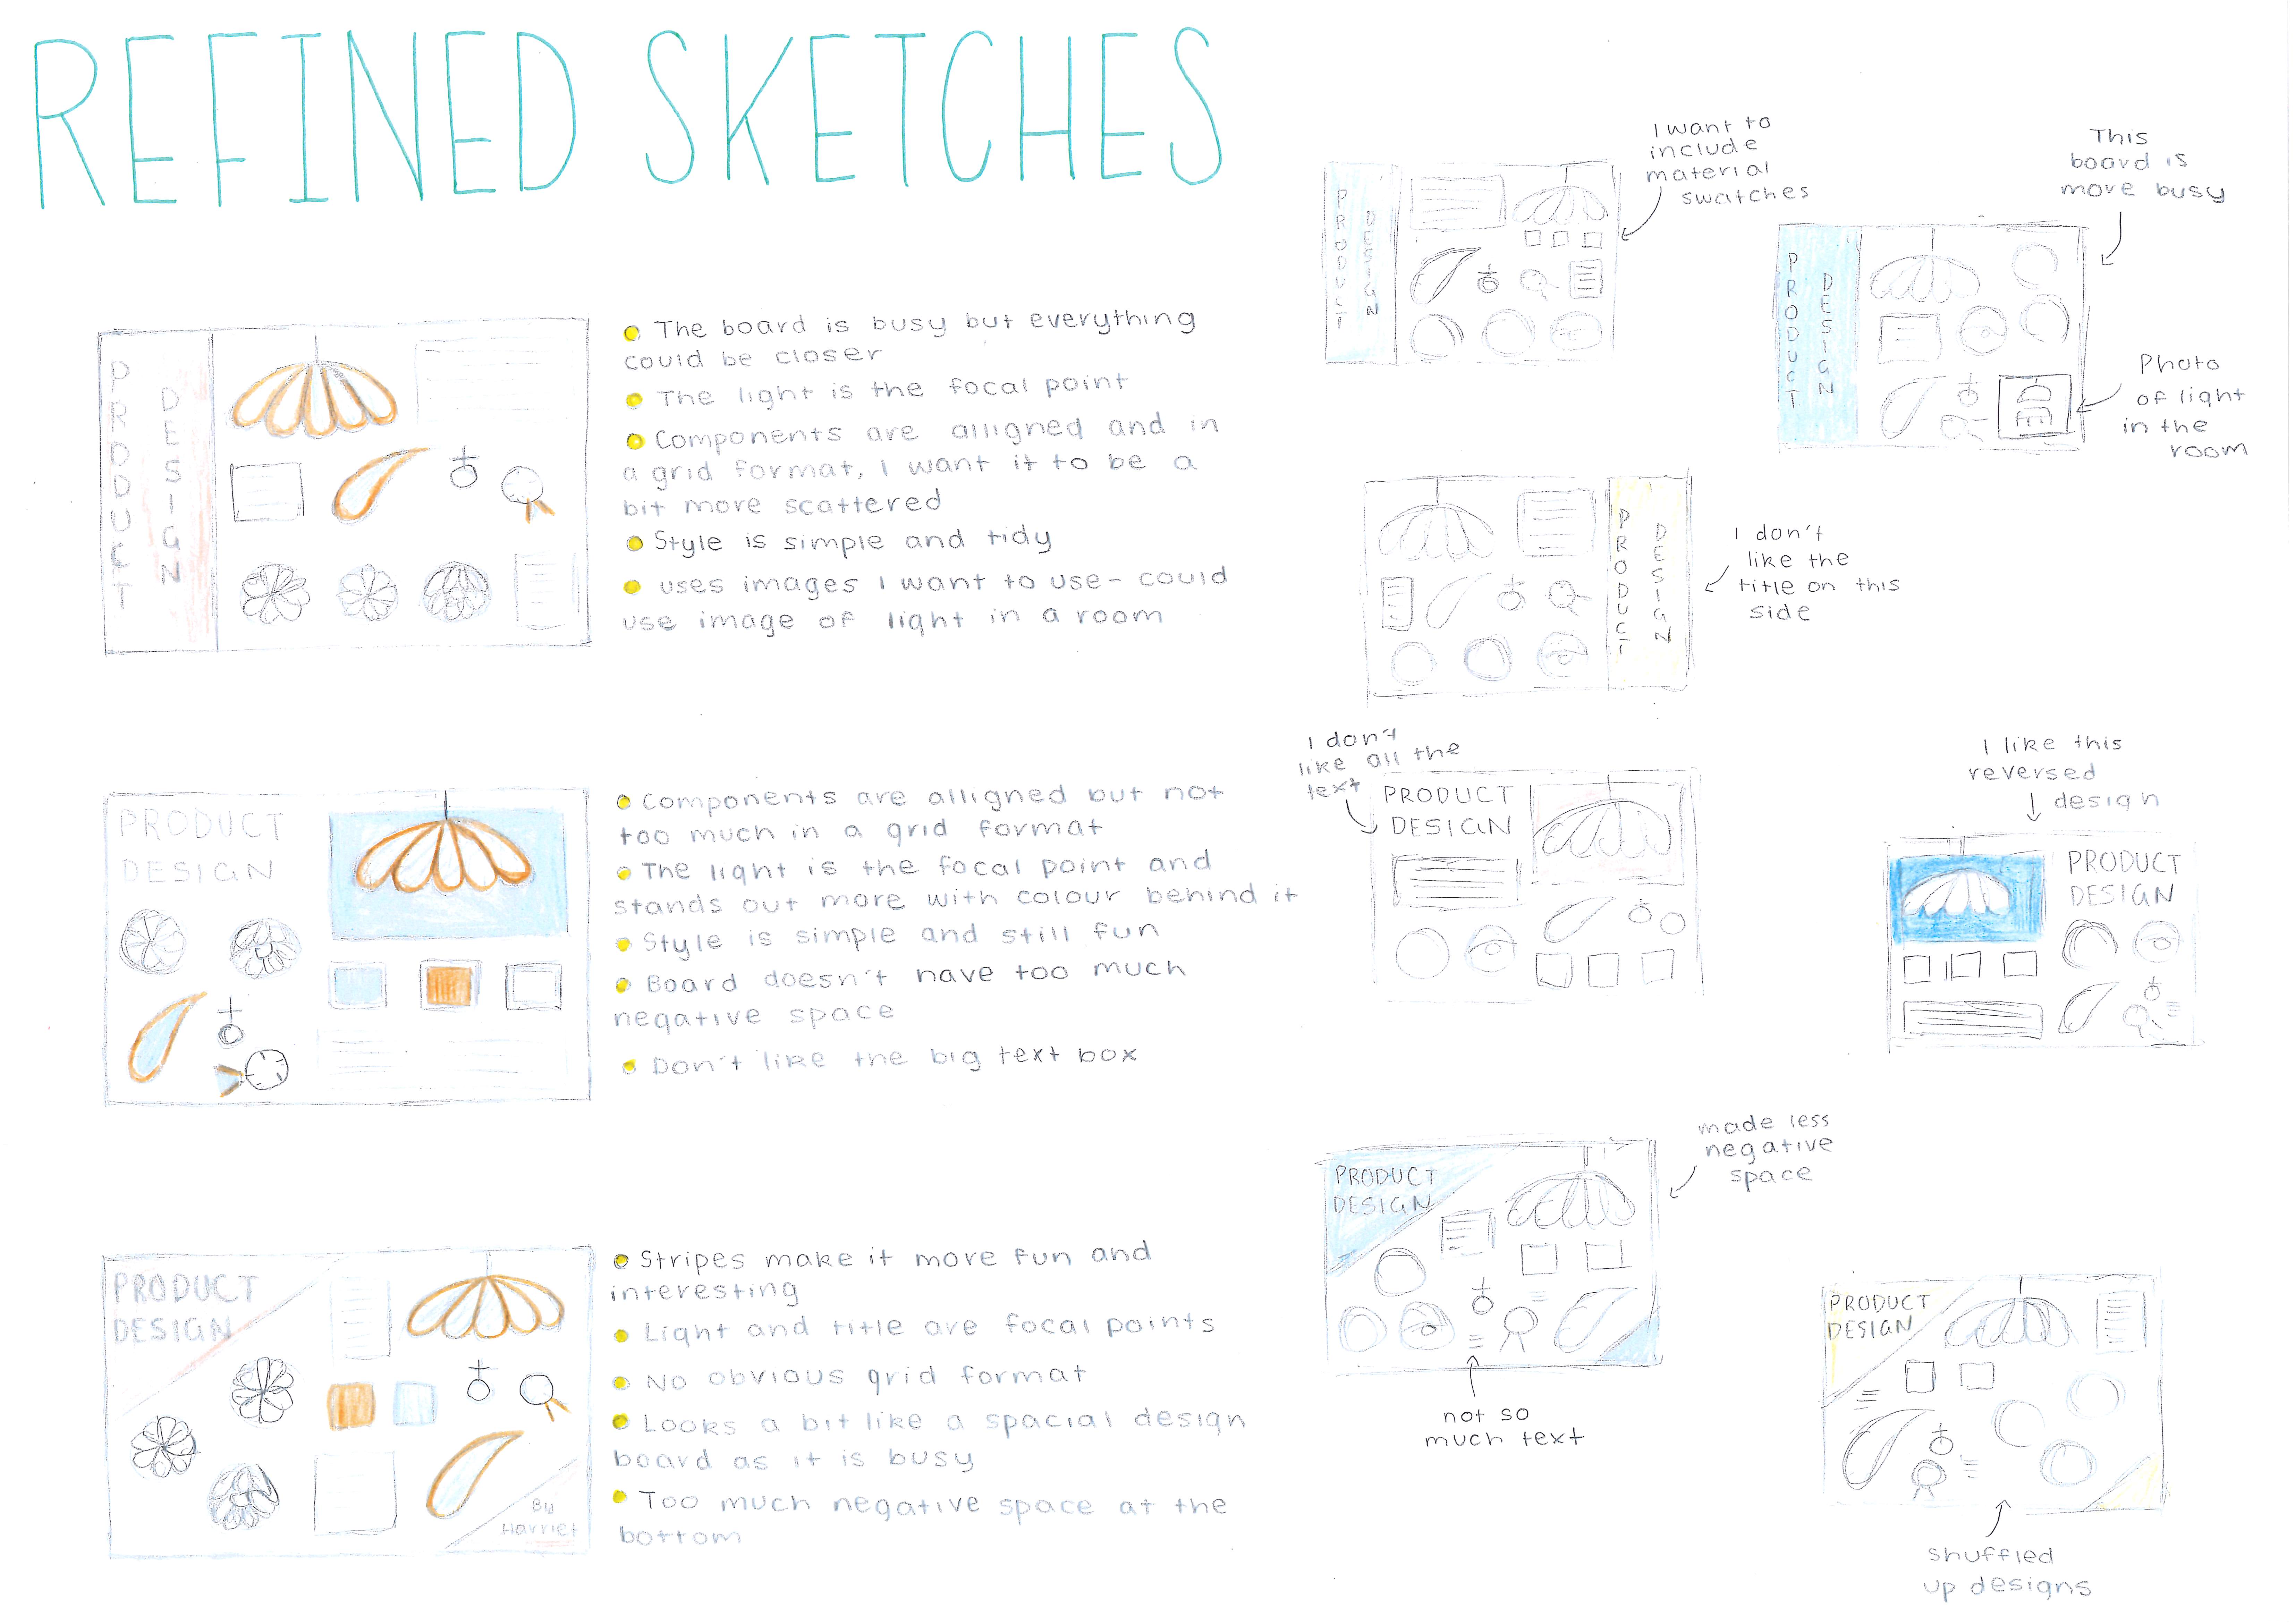 REFINED SKETCHES
PRODUCT
DESIGN
The board is busy but everything
could be closer
The light is the focal point
Components are alligned and in
a grid format, I want it to be a
bit more scattered
Style is simple and tidy
uses images I want to use - could
use image of light in a room
PRODUCT
DESIGN
Components are alligned but not
too much in a grid format
The light is the focal point and
stands out more with colour behind it
Style is simple and still fun
Board doesn't have too much
negative space
Don't like the big text box
PRODUCT
DESIGN
By
Harriet
Stripes make it more fun and
interesting
Light and title are focal points
No obvious grid format
Looks a bit like a spacial design
board as it is busy
Too much negative space at the
bottom
PRODUCT
DESIGN
I want to
include
material
swatches
PRODUCT
DESIGN
This
board is
more busy
Photo
of light
in the
room
PRODUCT
DESIGN
I don't
like the
title on this
side
I don't
like all the
text
PRODUCT
DESIGN
I like this
reversed
design
PRODUCT
DESIGN
PRODUCT
DESIGN
made less
negative
space
not so
much text
PRODUCT
DESIGN
shuffled
up designs